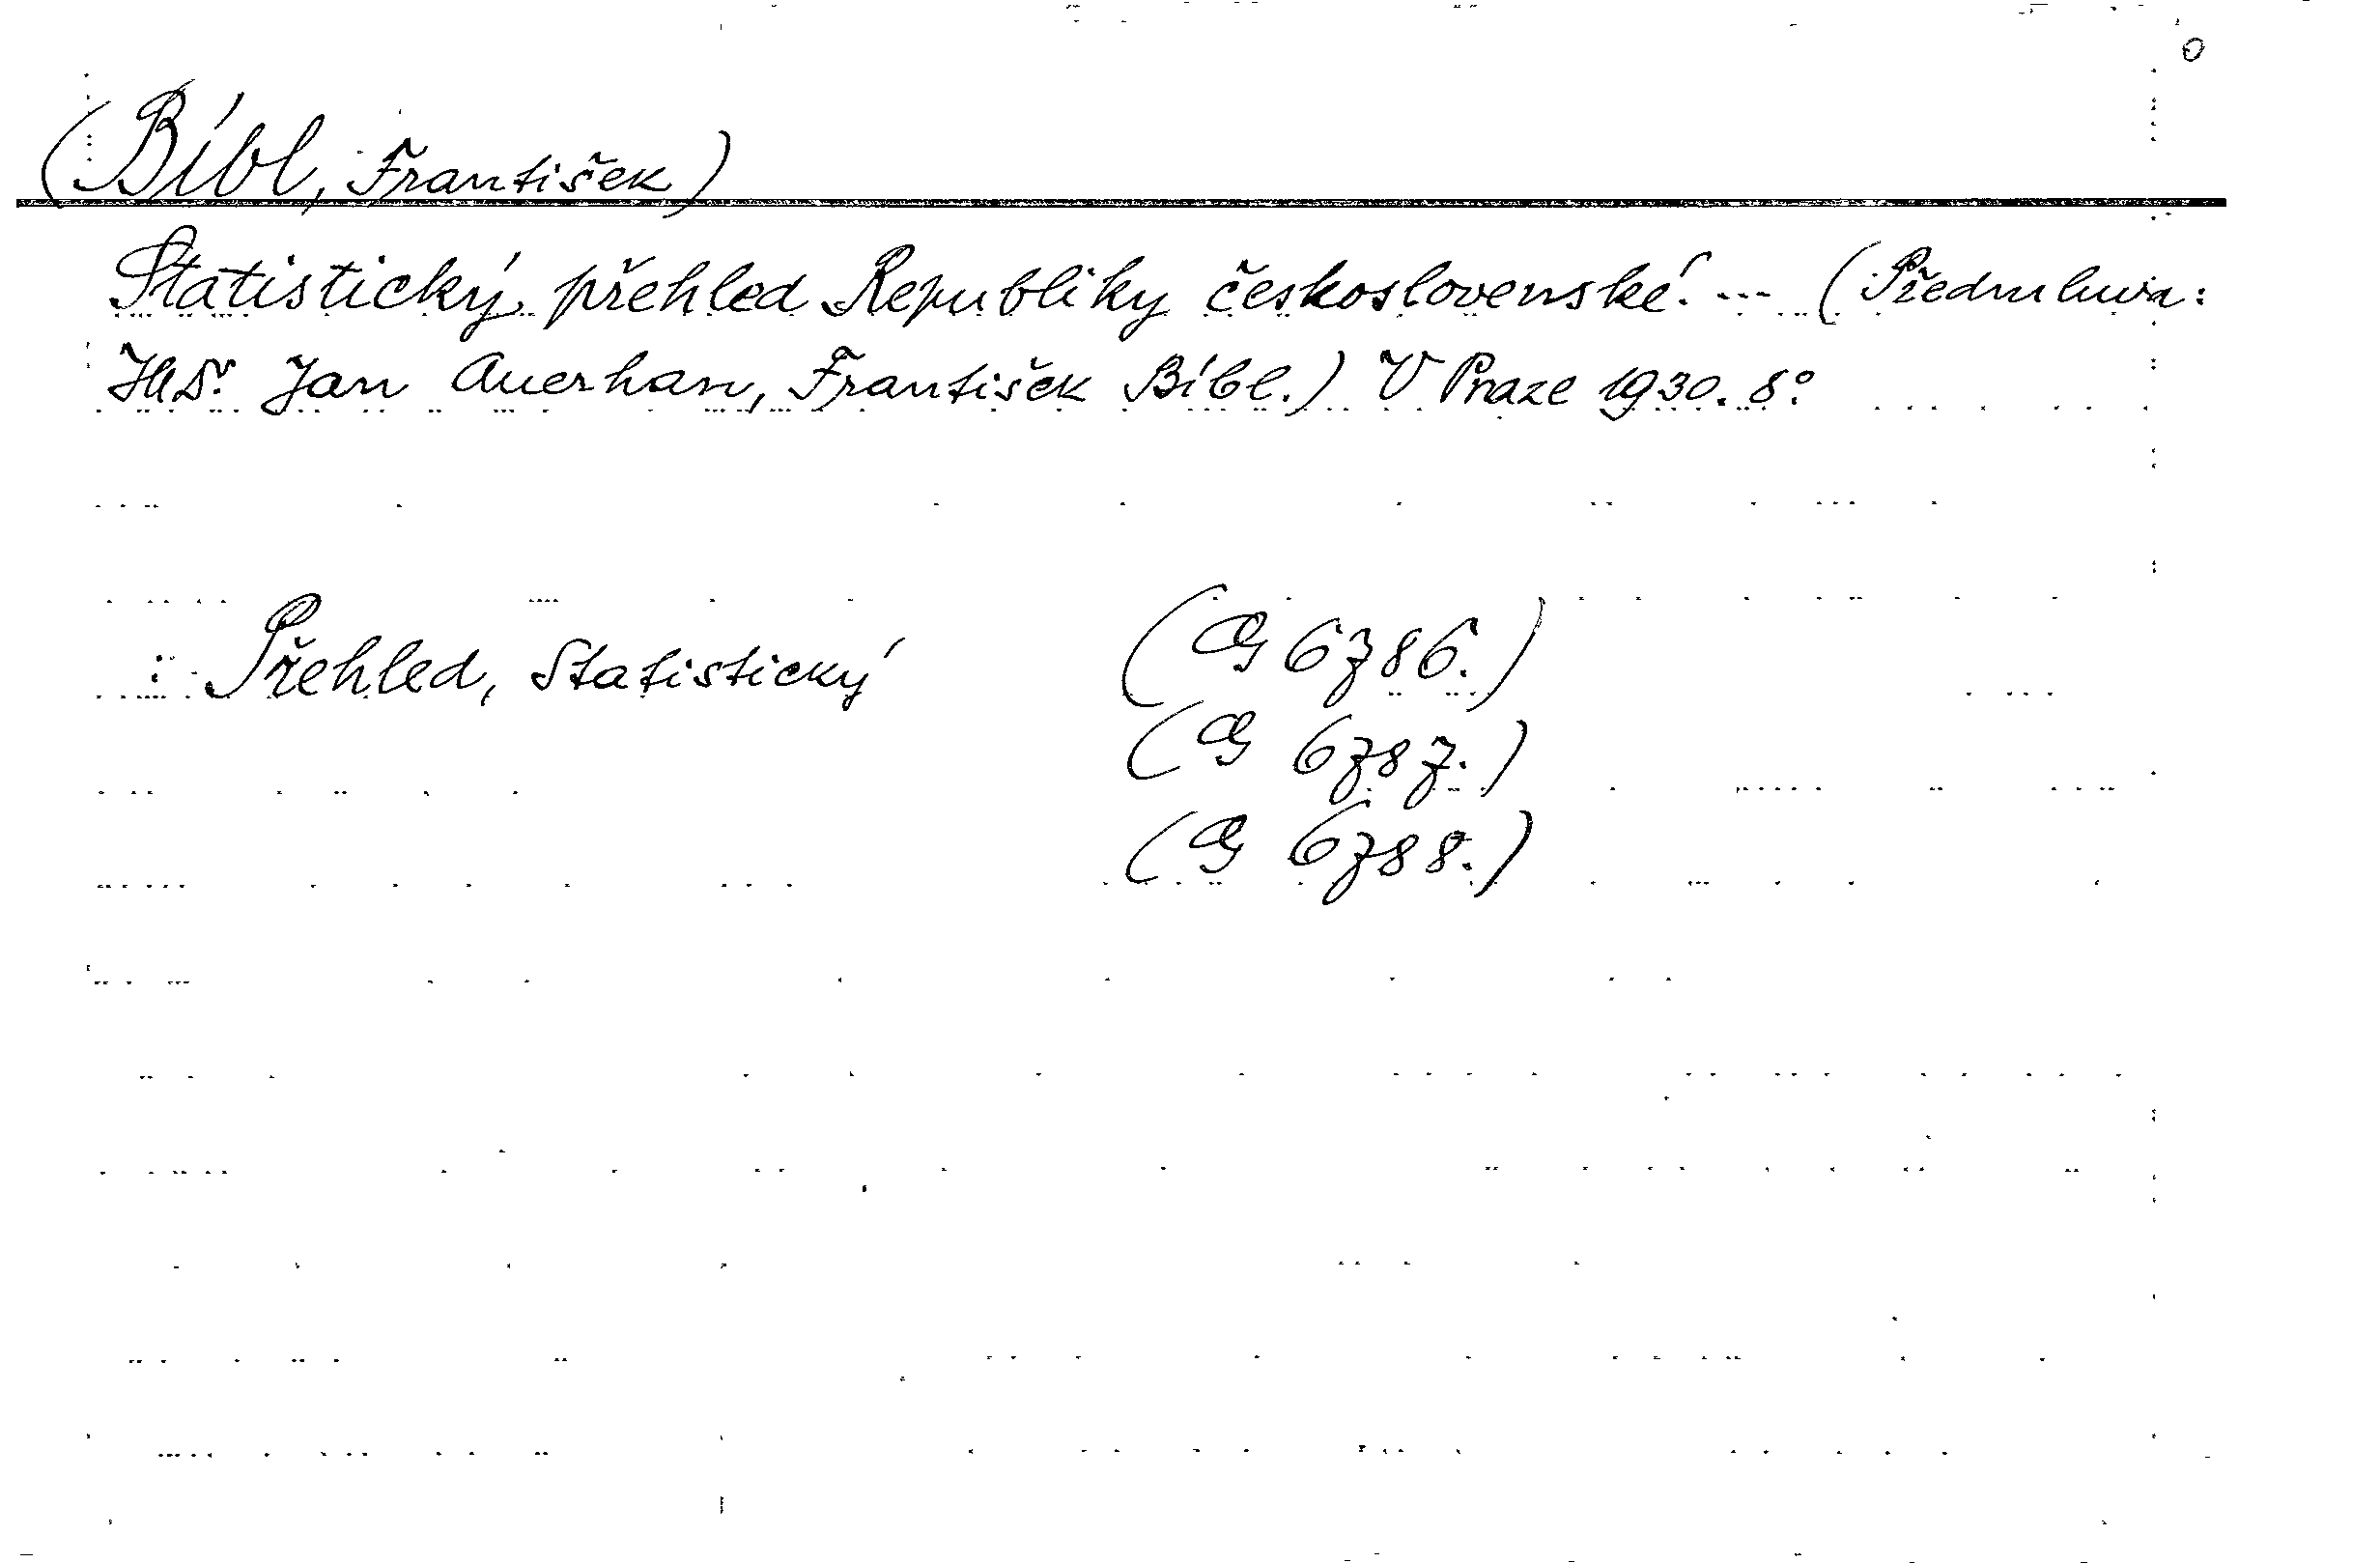 (Bíbl, František)
Statistický přehled Republiky československé. --- (Předmluva:
JUDr. Jan Auerhan, František Bíbl.) V Praze 1930. 8°
: Přehled, Statistický
(G 6786.)
(G 6787.)
(G 6788.)